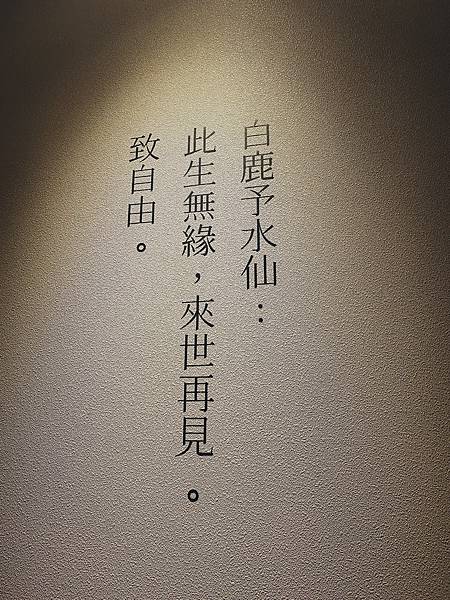 白鹿予水仙：
此生無緣，來世再見。
致自由。